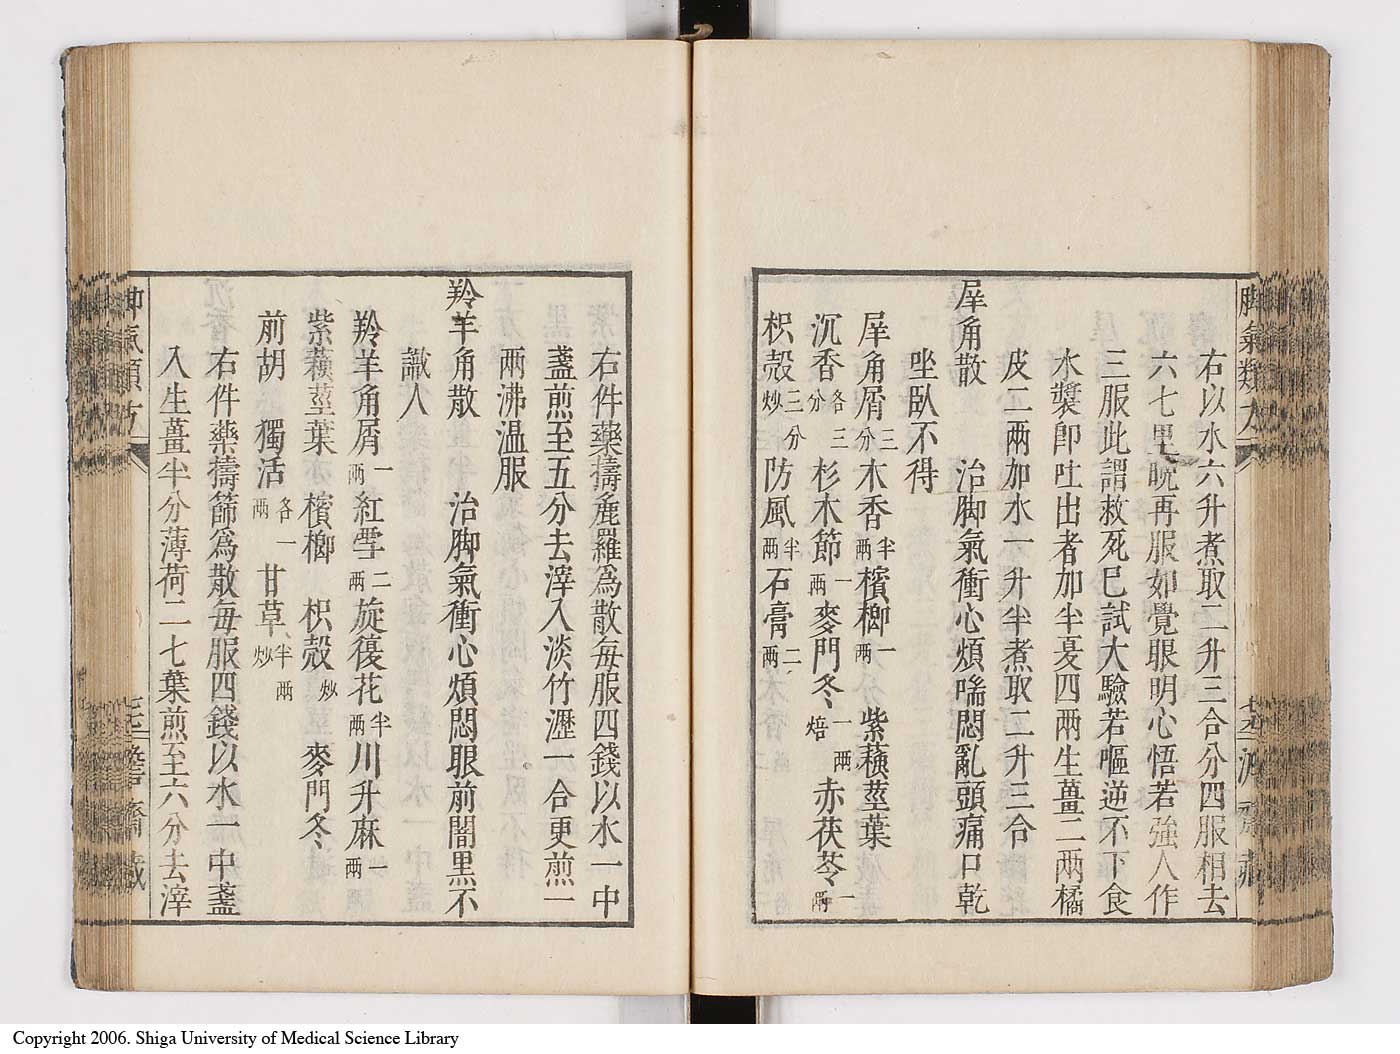 右以水六升煮取二升三合分四服相去
六七里晩再服如覺眼明心悟若強人作
三服此謂救死已試大驗若嘔逆不下食
水漿卽吐出者加半夏四兩生薑二兩橘
皮二兩加水一升半煮取二升三合
犀角散　治脚氣衝心煩喘悶亂頭痛口乾
坐臥不得
犀角屑三分 木香半兩 檳榔一兩 紫蘓莖葉
沉香各三分 杉木節一兩 麥門冬一兩焙 赤茯苓一兩
枳殼三分炒 防風半兩 石膏二兩
右件藥擣麁羅為散每服四錢以水一中
盞煎至五分去滓入淡竹瀝一合更煎一
兩沸温服
羚羊角散　治脚氣衝心煩悶眼前闇黑不
識人
羚羊角屑一兩 紅雪二兩 旋復花半兩 川升麻一兩
紫蘓莖葉 檳榔 枳殼炒 麥門冬
前胡 獨活各一兩 甘草炒半兩
右件藥擣篩爲散每服四錢以水一中盞
入生薑半分薄荷二七葉煎至六分去滓
Copyright 2006. Shiga University of Medical Science Library